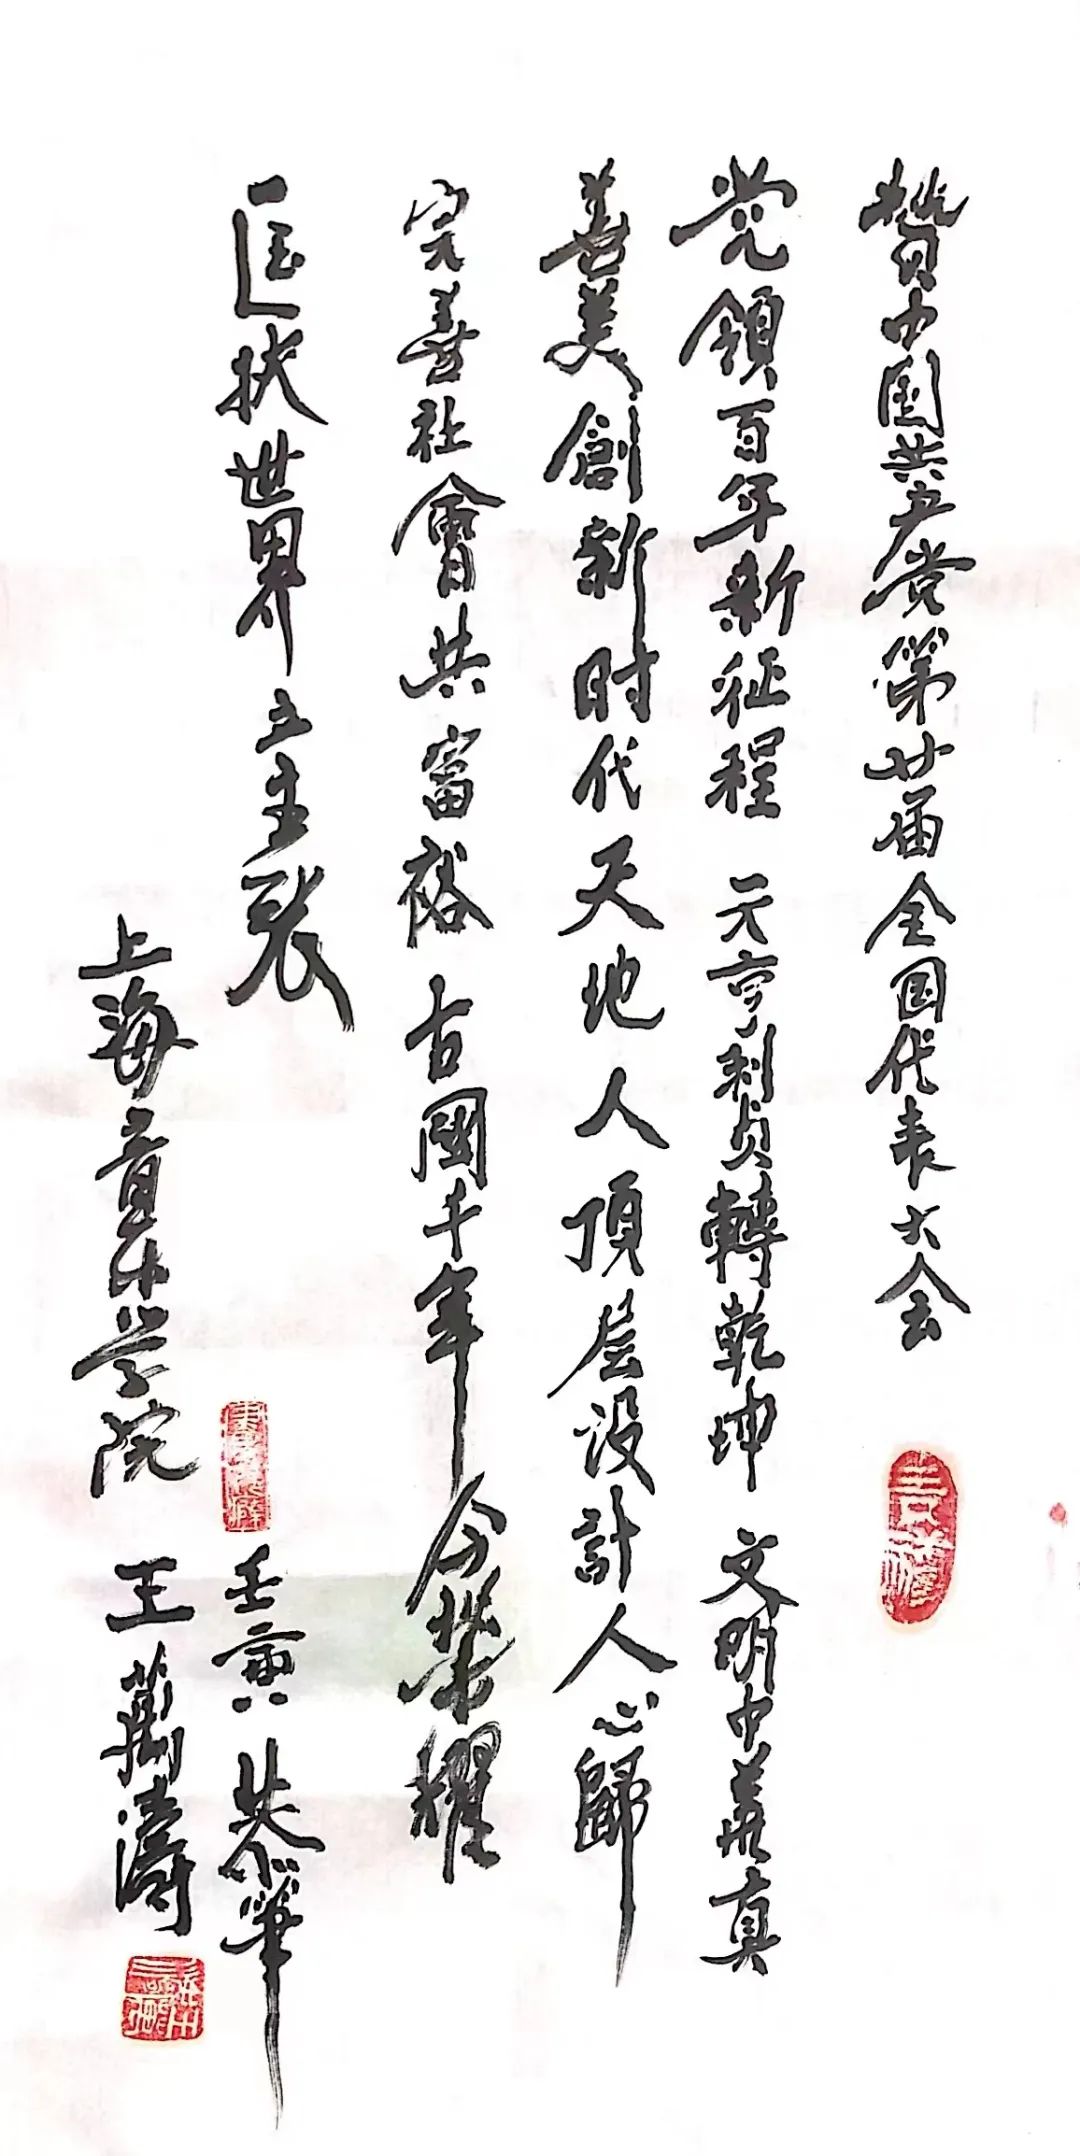 赞中国共产党第廿届全国代表大会
党领百年新征程 元亨利贞轉乾坤 文明中華真
善美創新时代天地人顶层设計人心歸
完善社會共富裕古國千年今荣耀
匡扶世界立主張
壬寅 恭筆
上海音乐学院 王萬濤
吉祥